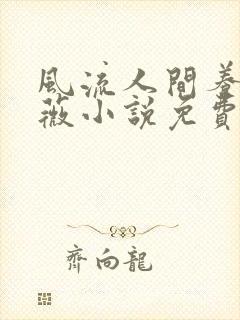 風流人間蔷
薇小説免費
齊向龍